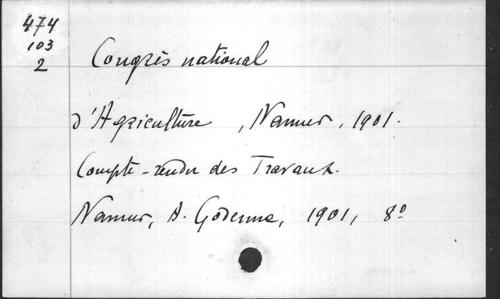 474
103
2
Congrès national
d'Agriculture, Namur, 1901.
Compte-rendu des Travaux.
Namur, A. Godenne, 1901, 8º